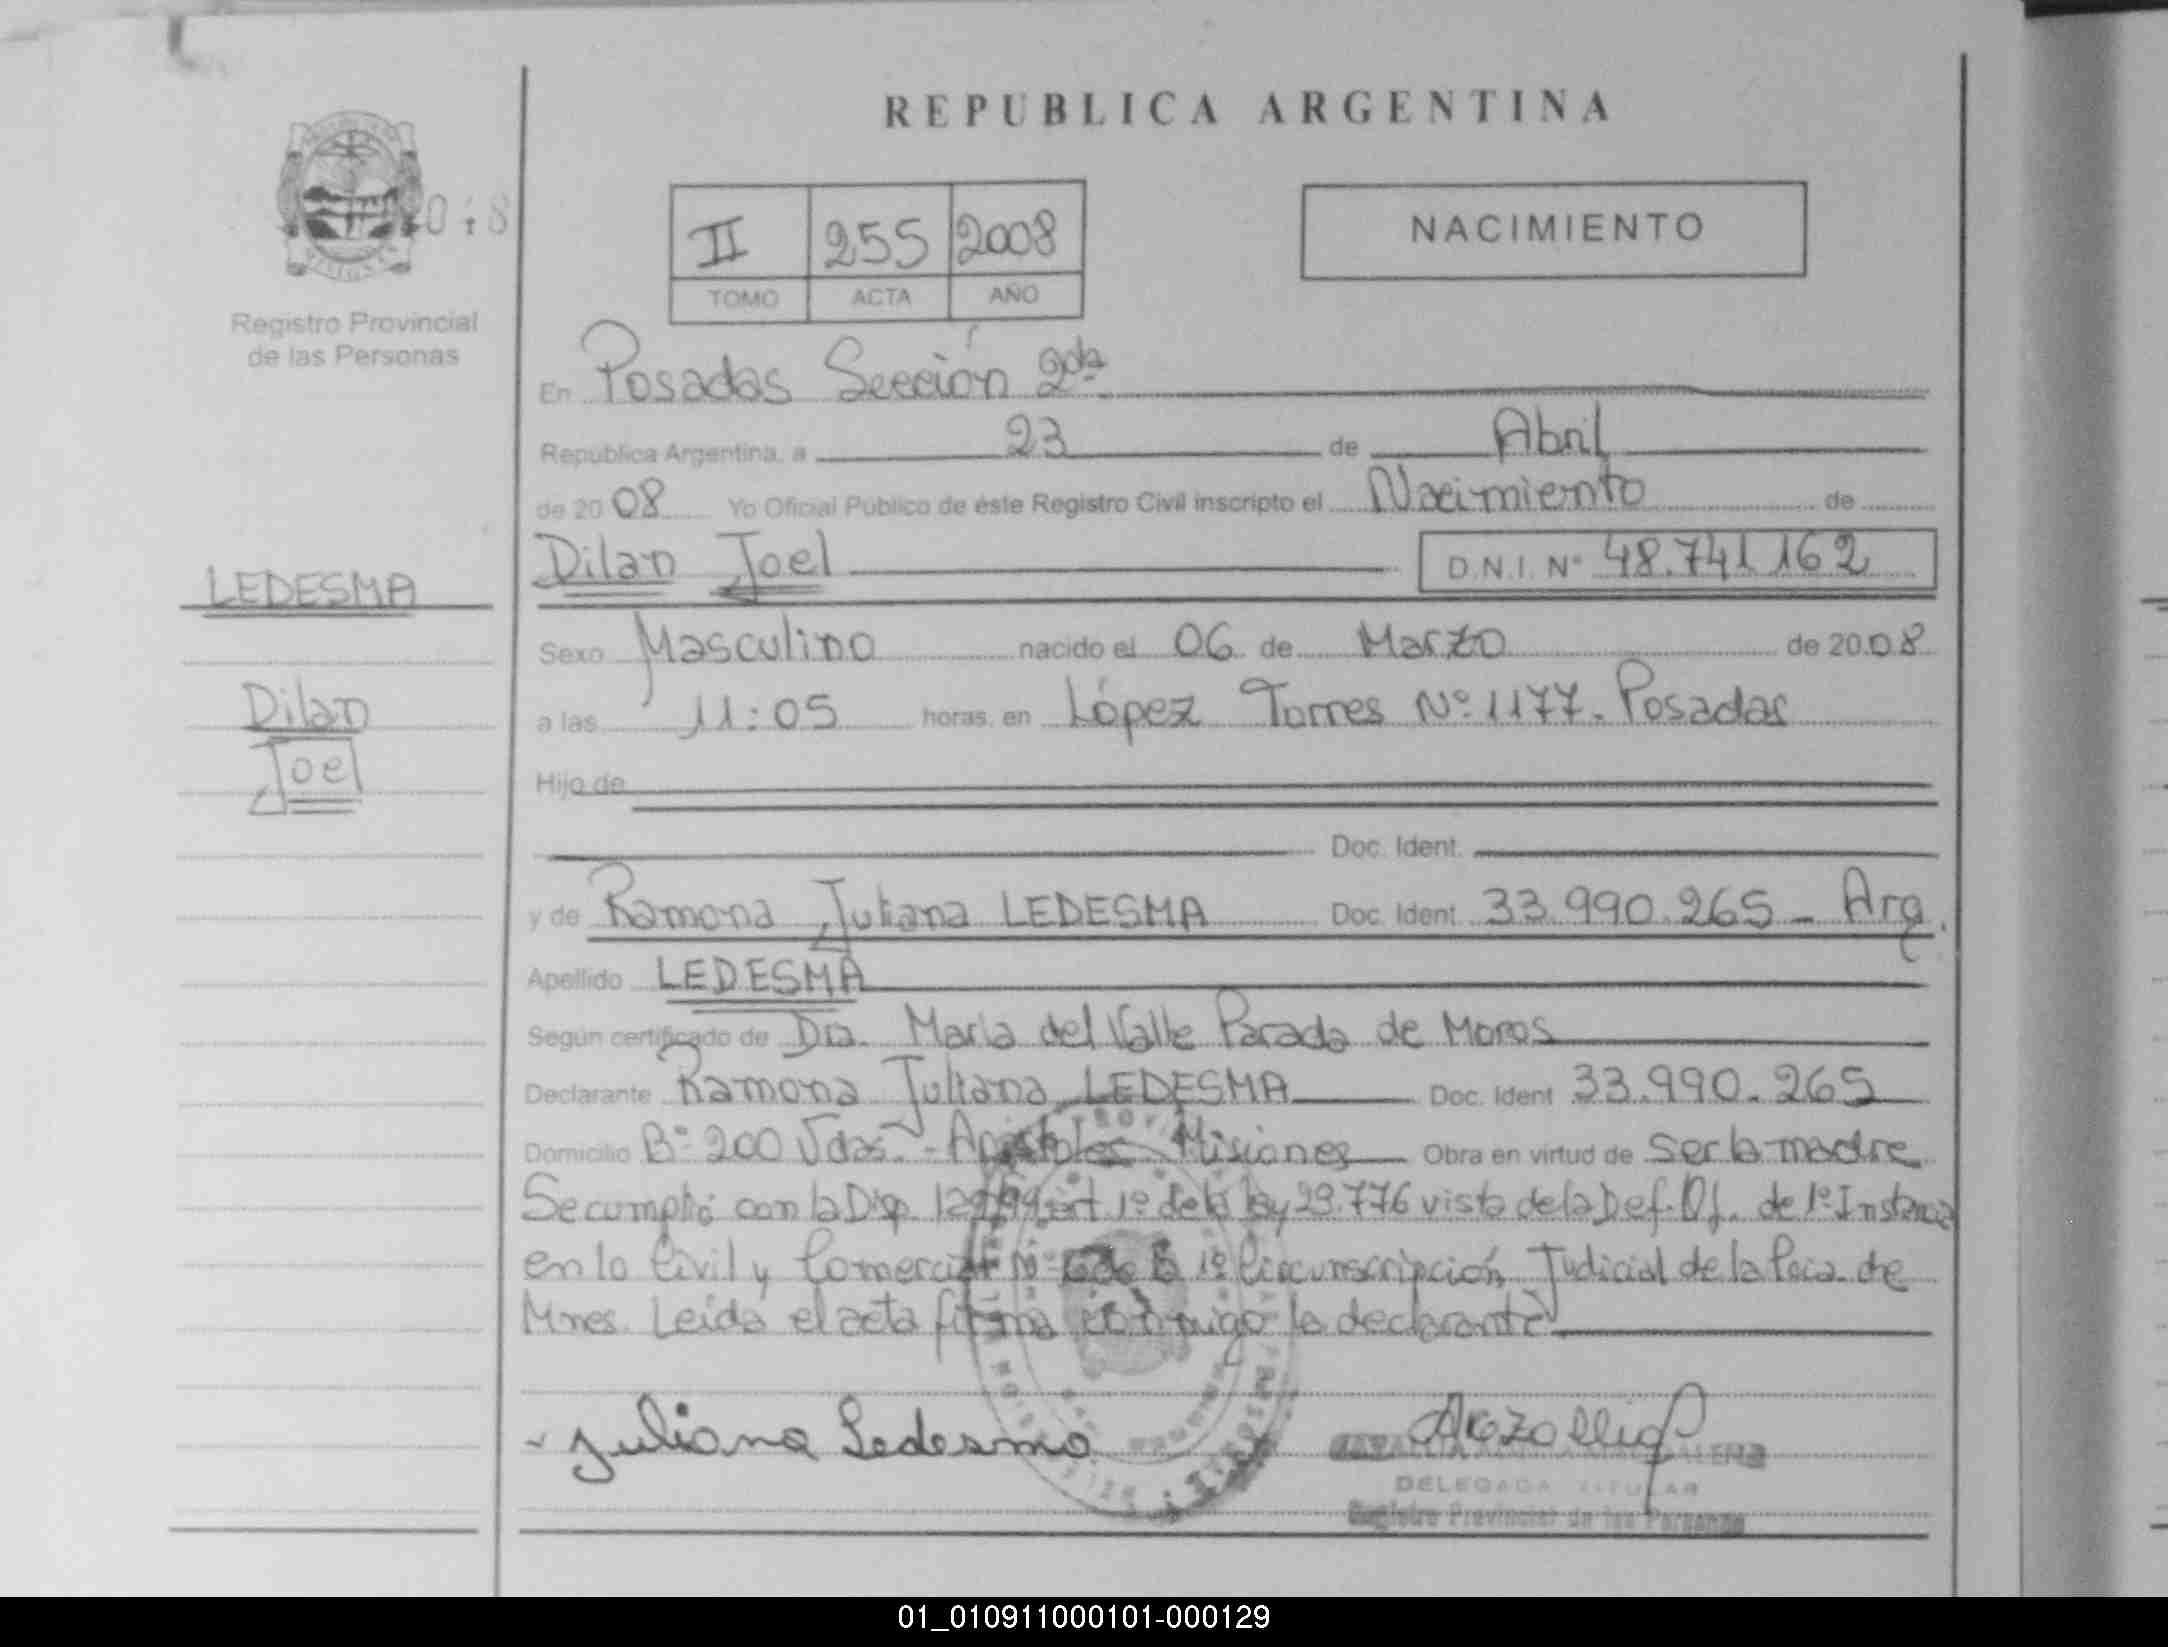 REPUBLICA ARGENTINA
NACIMIENTO
II 255 2008
TOMO ACTA AÑO
Registro Provincial
de las Personas
En Posadas Sección 2da
Republica Argentina, a 23 de Abril
de 2008 Yo Oficial Público de éste Registro Civil inscripto el Nacimiento de
Dilan Joel D.N.I. N° 48.741.162
LEDESMA
Sexo Masculino nacido el 06 de Marzo de 2008
Dilan
a las 11:05 horas, en López Torres Nº 1177. Posadas
Joel
Hijo de
Doc. Ident.
y de Ramona Juliana LEDESMA Doc. Ident. 33.990.265 - Arg.
Apellido LEDESMA
Según certificado de Dra. María del Valle Parada de Moros
Declarante Ramona Juliana LEDESMA Doc. Ident 33.990.265
Domicilio B° 200 Vdas. - Apóstoles Misiones Obra en virtud de ser la madre
Se cumplió con la Disp. art 1º de la ley 23.776 vista de la Def. Of. de 1º Instancia
en lo Civil y Comercial Nº de la 1º Circunscripción Judicial de la Pcia. de
Mnes. Leída el acta firma conmigo la declarante
Juliana Ledesma
DELEGADA TITULAR
Registro Provincial de las Personas
01_010911000101-000129